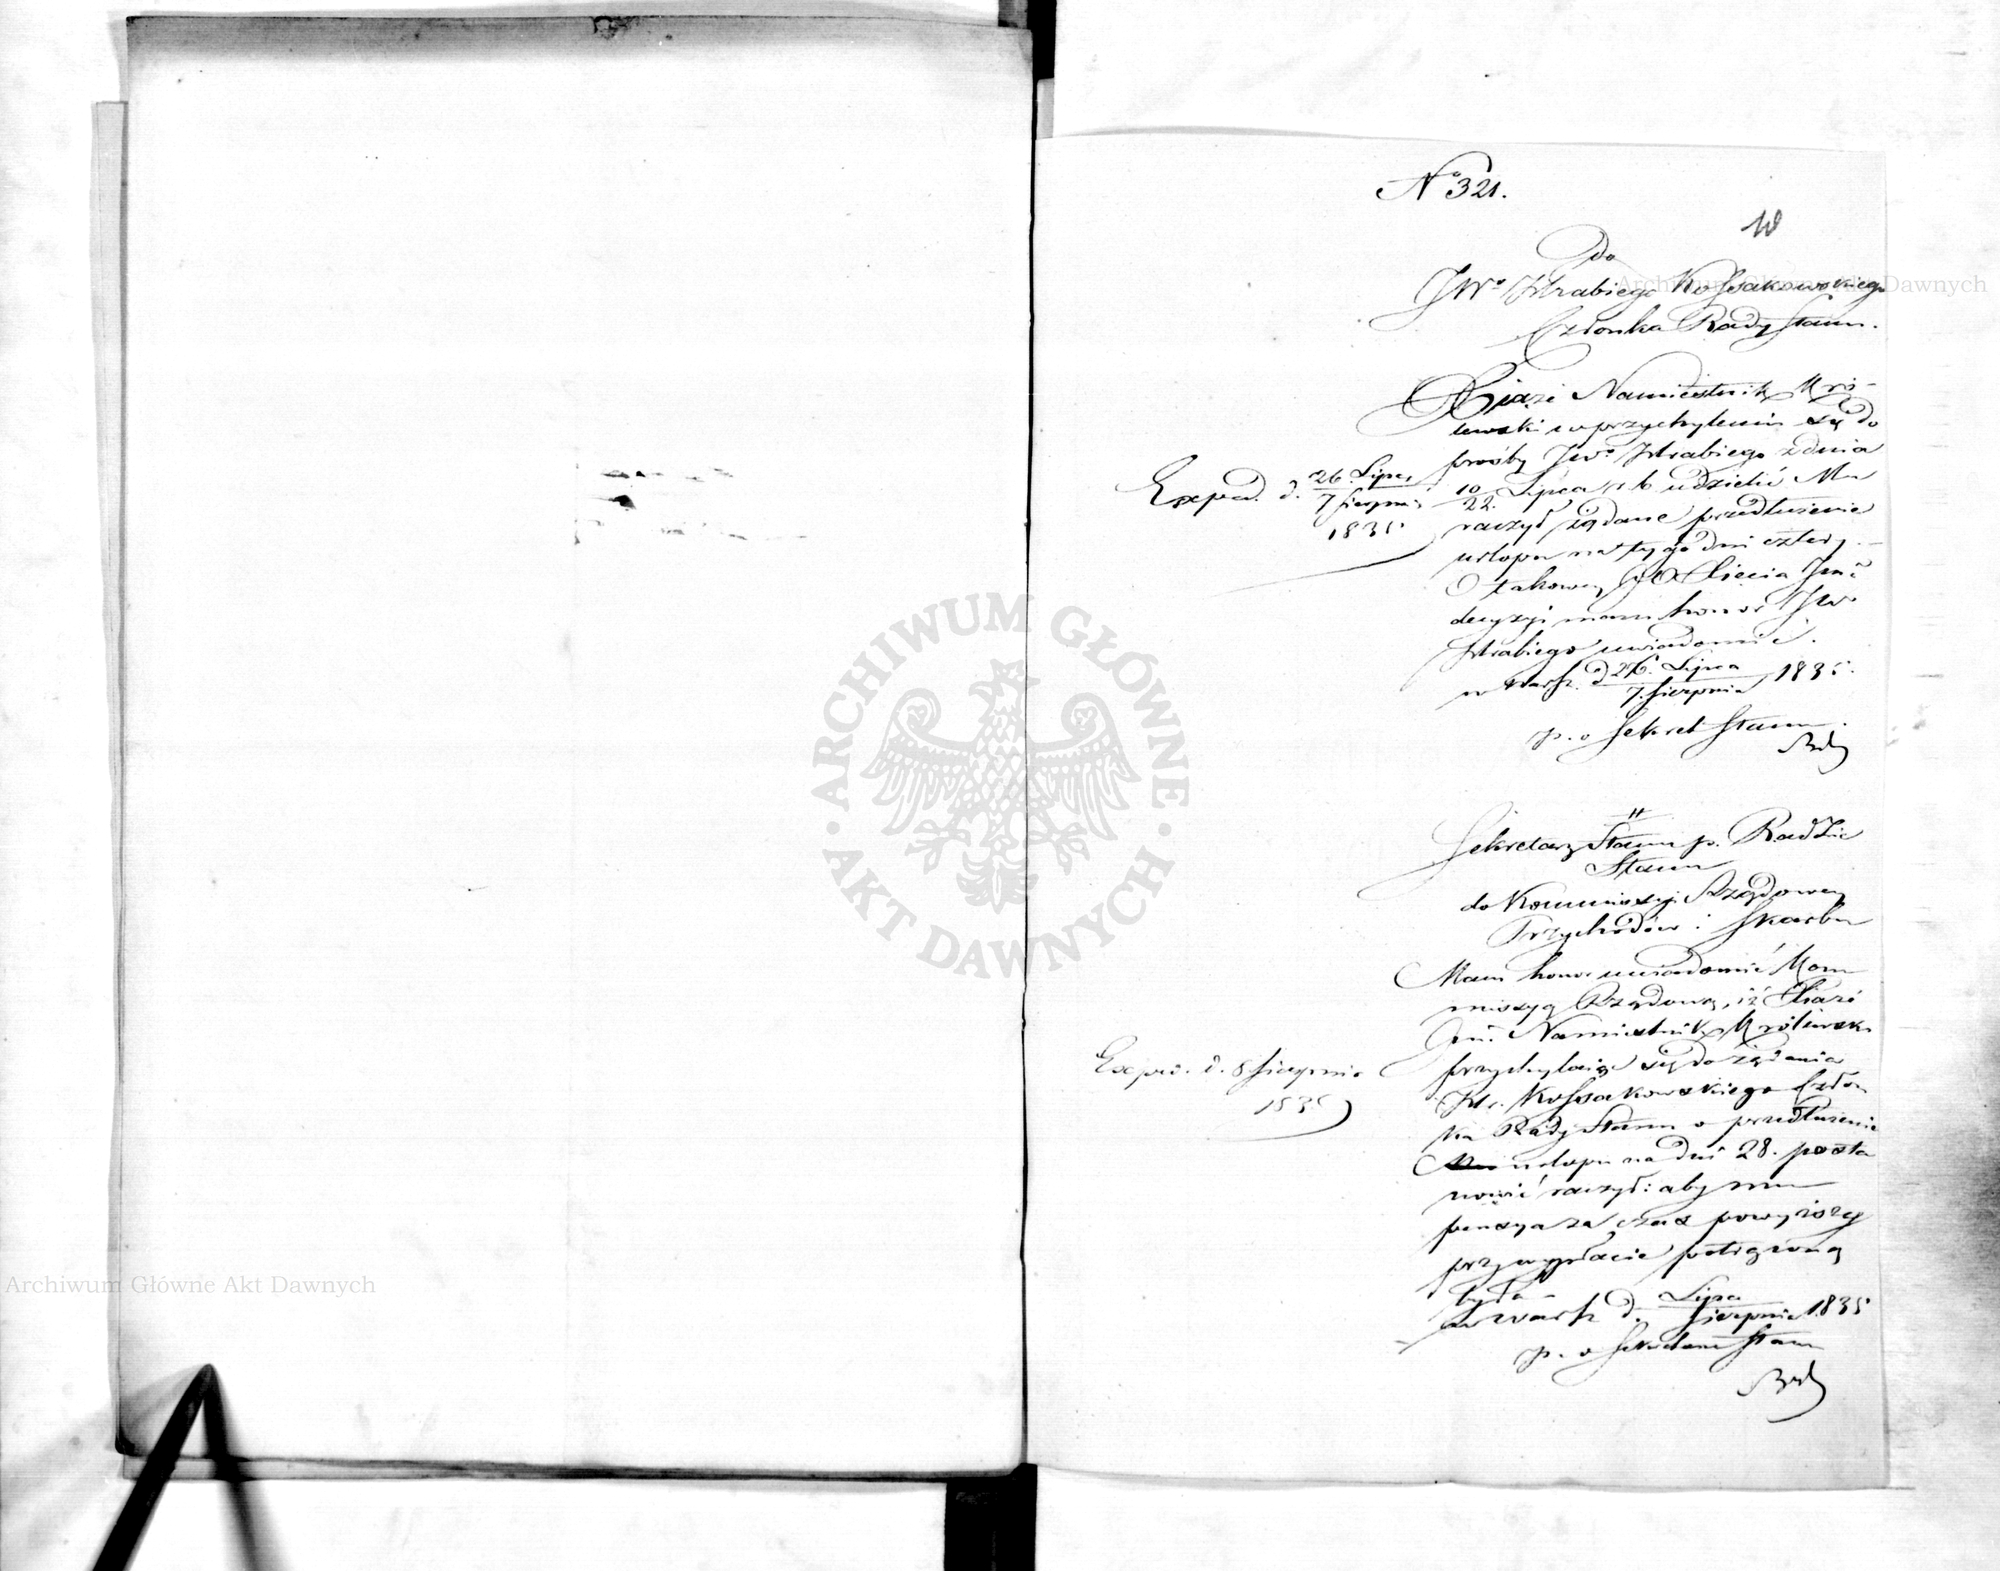 No 321.
10
do
JWo Hrabiego Kossakowskiego
Członka Rady Stanu.
Xiąże Namiestnik Kró-
lewski w przychyleniu się do
prośby JWo Hrabiego z dnia
10/22. Lipca r. b. udzielić Mu
raczył żądane przedłużenie
urlopu na tygodni cztery. —
O takowey JO Xięcia Jmć
decyzyi mam honor JWo
Hrabiego uwiadomić.
w Warsz. d. 26 Lipca/7. Sierpnia 1835.
p. o Sekret Stanu.
Exped. d. 26 Lipca/7 Sierpnia
1835
II
Sekretarz Stanu p. Radzie
Stanu
do Kommissyi Rządowey
Przychodów i Skarbu
Mam honor uwiadomić Kom
missyą Rządową, iż Xiąże
Jmć. Namiestnik Królewski
przychylając się do żądania
Hr. Kossakowskiego Człon
ka Rady Stanu o przedłużenie
urlopu na dni 28. posta
nowić raczył: aby mu
pensya za czas powyższy
przy wypłacie potrąconą
była —
w Warsz d. Lipca/Sierpnia 1835
p. o Sekretarza Stanu
Exped. d. 8 Sierpnia
1835
ARCHIWUM GŁÓWNE
AKT DAWNYCH
Archiwum Główne Akt Dawnych
Archiwum Główne Akt Dawnych